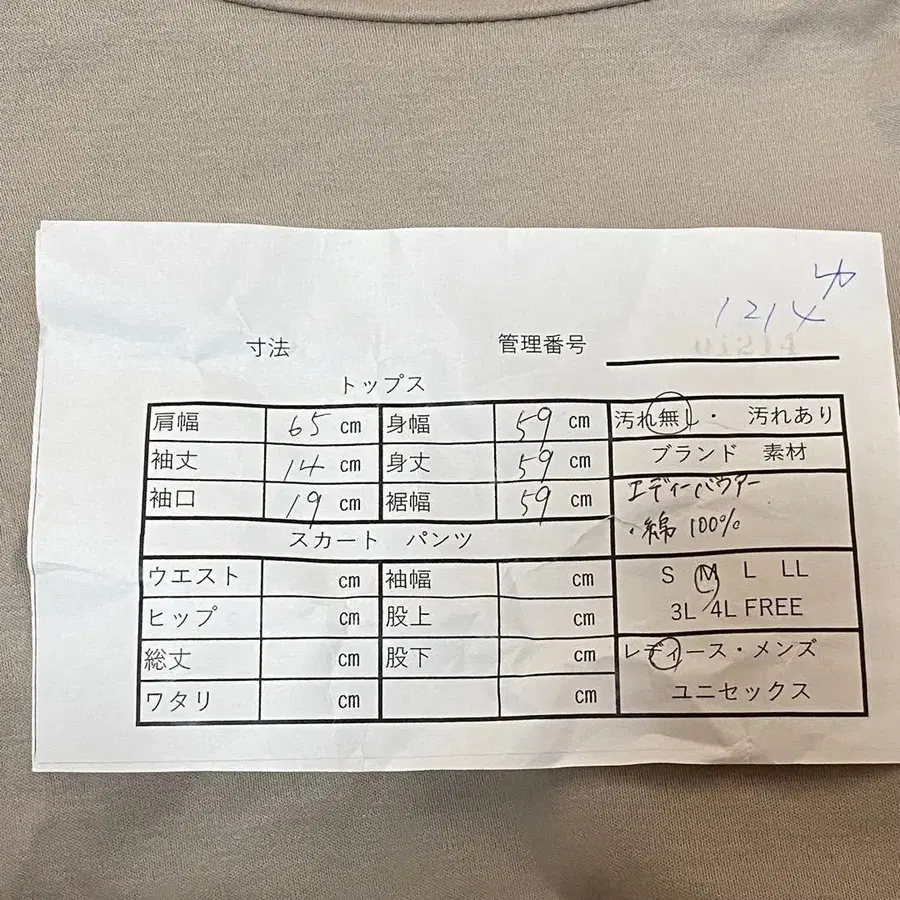 カ
1214
寸法 管理番号
トップス
肩幅 65 cm 身幅 59 cm 汚れ無し・ 汚れあり
袖丈 14 cm 身丈 59 cm ブランド 素材
袖口 19 cm 裾幅 59 cm エディーバウアー
・綿 100%
スカート パンツ
ウエスト cm 袖幅 cm S M L LL
ヒップ cm 股上 cm 3L 4L FREE
総丈 cm 股下 cm レディース・メンズ
ワタリ cm cm ユニセックス